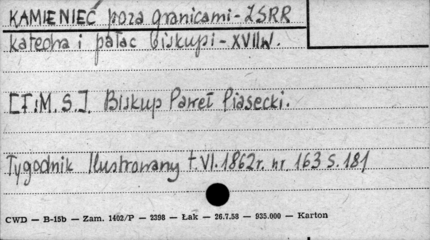 KAMIENIEĆ poza granicami - ZSRR
katedra i pałac biskupi - XVII w.
[F.M.S.]. Biskup Paweł Piasecki.
Tygodnik Ilustrowany t. VI. 1862 r. nr 163 S. 181
CWD — B-15b — Zam. 1402/P — 2398 — Łak — 26.7.58 — 935.000 — Karton